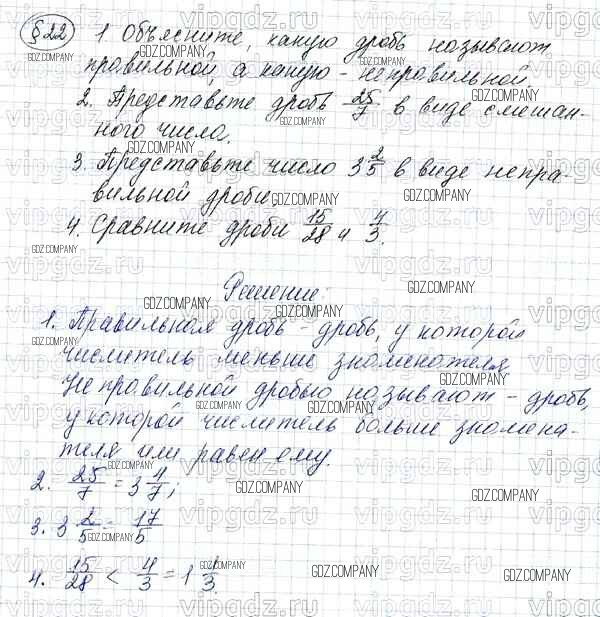 § 22 1 Объясните, какую дробь называют
правильной, а какую – неправильной.
2. Представьте дробь 25/7 в виде смешан-
ного числа.
3. Представьте число 3 2/5 в виде непра-
вильной дроби.
4. Сравните дроби 15/28 и 4/3.
Решение:
1. Правильная дробь – дробь, у которой
числитель меньше знаменателя
Неправильной дробью называют – дробь,
у которой числитель больше знамена-
теля или равен ему.
2. 25/7 = 3 4/7;
3. 3 2/5 = 17/5
4. 15/28 < 4/3 = 1 1/3.
GDZ.COMPANY
vipgdz.ru